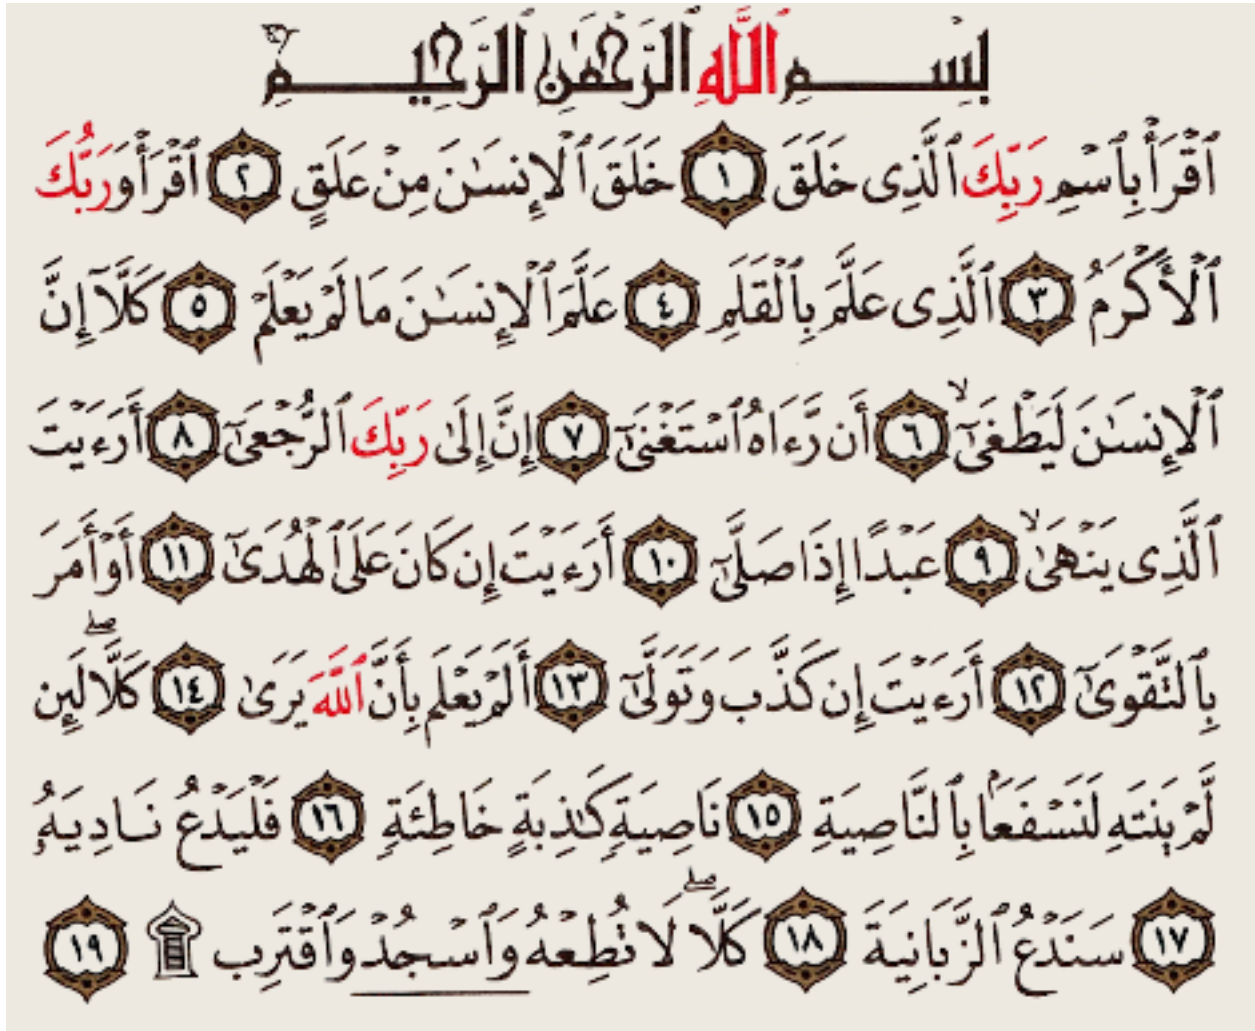 بِسْمِ ٱللَّهِ ٱلرَّحْمَٰنِ ٱلرَّحِيمِ
ٱقْرَأْ بِٱسْمِ رَبِّكَ ٱلَّذِى خَلَقَ ١ خَلَقَ ٱلْإِنسَٰنَ مِنْ عَلَقٍ ٢ ٱقْرَأْ وَرَبُّكَ
ٱلْأَكْرَمُ ٣ ٱلَّذِى عَلَّمَ بِٱلْقَلَمِ ٤ عَلَّمَ ٱلْإِنسَٰنَ مَا لَمْ يَعْلَمْ ٥ كَلَّآ إِنَّ
ٱلْإِنسَٰنَ لَيَطْغَىٰٓ ۙ ٦ أَن رَّءَاهُ ٱسْتَغْنَىٰٓ ٧ إِنَّ إِلَىٰ رَبِّكَ ٱلرُّجْعَىٰٓ ٨ أَرَءَيْتَ
ٱلَّذِى يَنْهَىٰ ۙ ٩ عَبْدًا إِذَا صَلَّىٰٓ ١٠ أَرَءَيْتَ إِن كَانَ عَلَى ٱلْهُدَىٰٓ ١١ أَوْ أَمَرَ
بِٱلتَّقْوَىٰٓ ١٢ أَرَءَيْتَ إِن كَذَّبَ وَتَوَلَّىٰٓ ١٣ أَلَمْ يَعْلَم بِأَنَّ ٱللَّهَ يَرَىٰ ١٤ كَلَّا ۖ لَئِن
لَّمْ يَنتَهِ لَنَسْفَعًۢا بِٱلنَّاصِيَةِ ١٥ نَاصِيَةٍ كَٰذِبَةٍ خَاطِئَةٍ ١٦ فَلْيَدْعُ نَادِيَهُۥ
١٧ سَنَدْعُ ٱلزَّبَانِيَةَ ١٨ كَلَّا ۖ لَا تُطِعْهُ وَٱسْجُدْ وَٱقْتَرِب ۩ ١٩